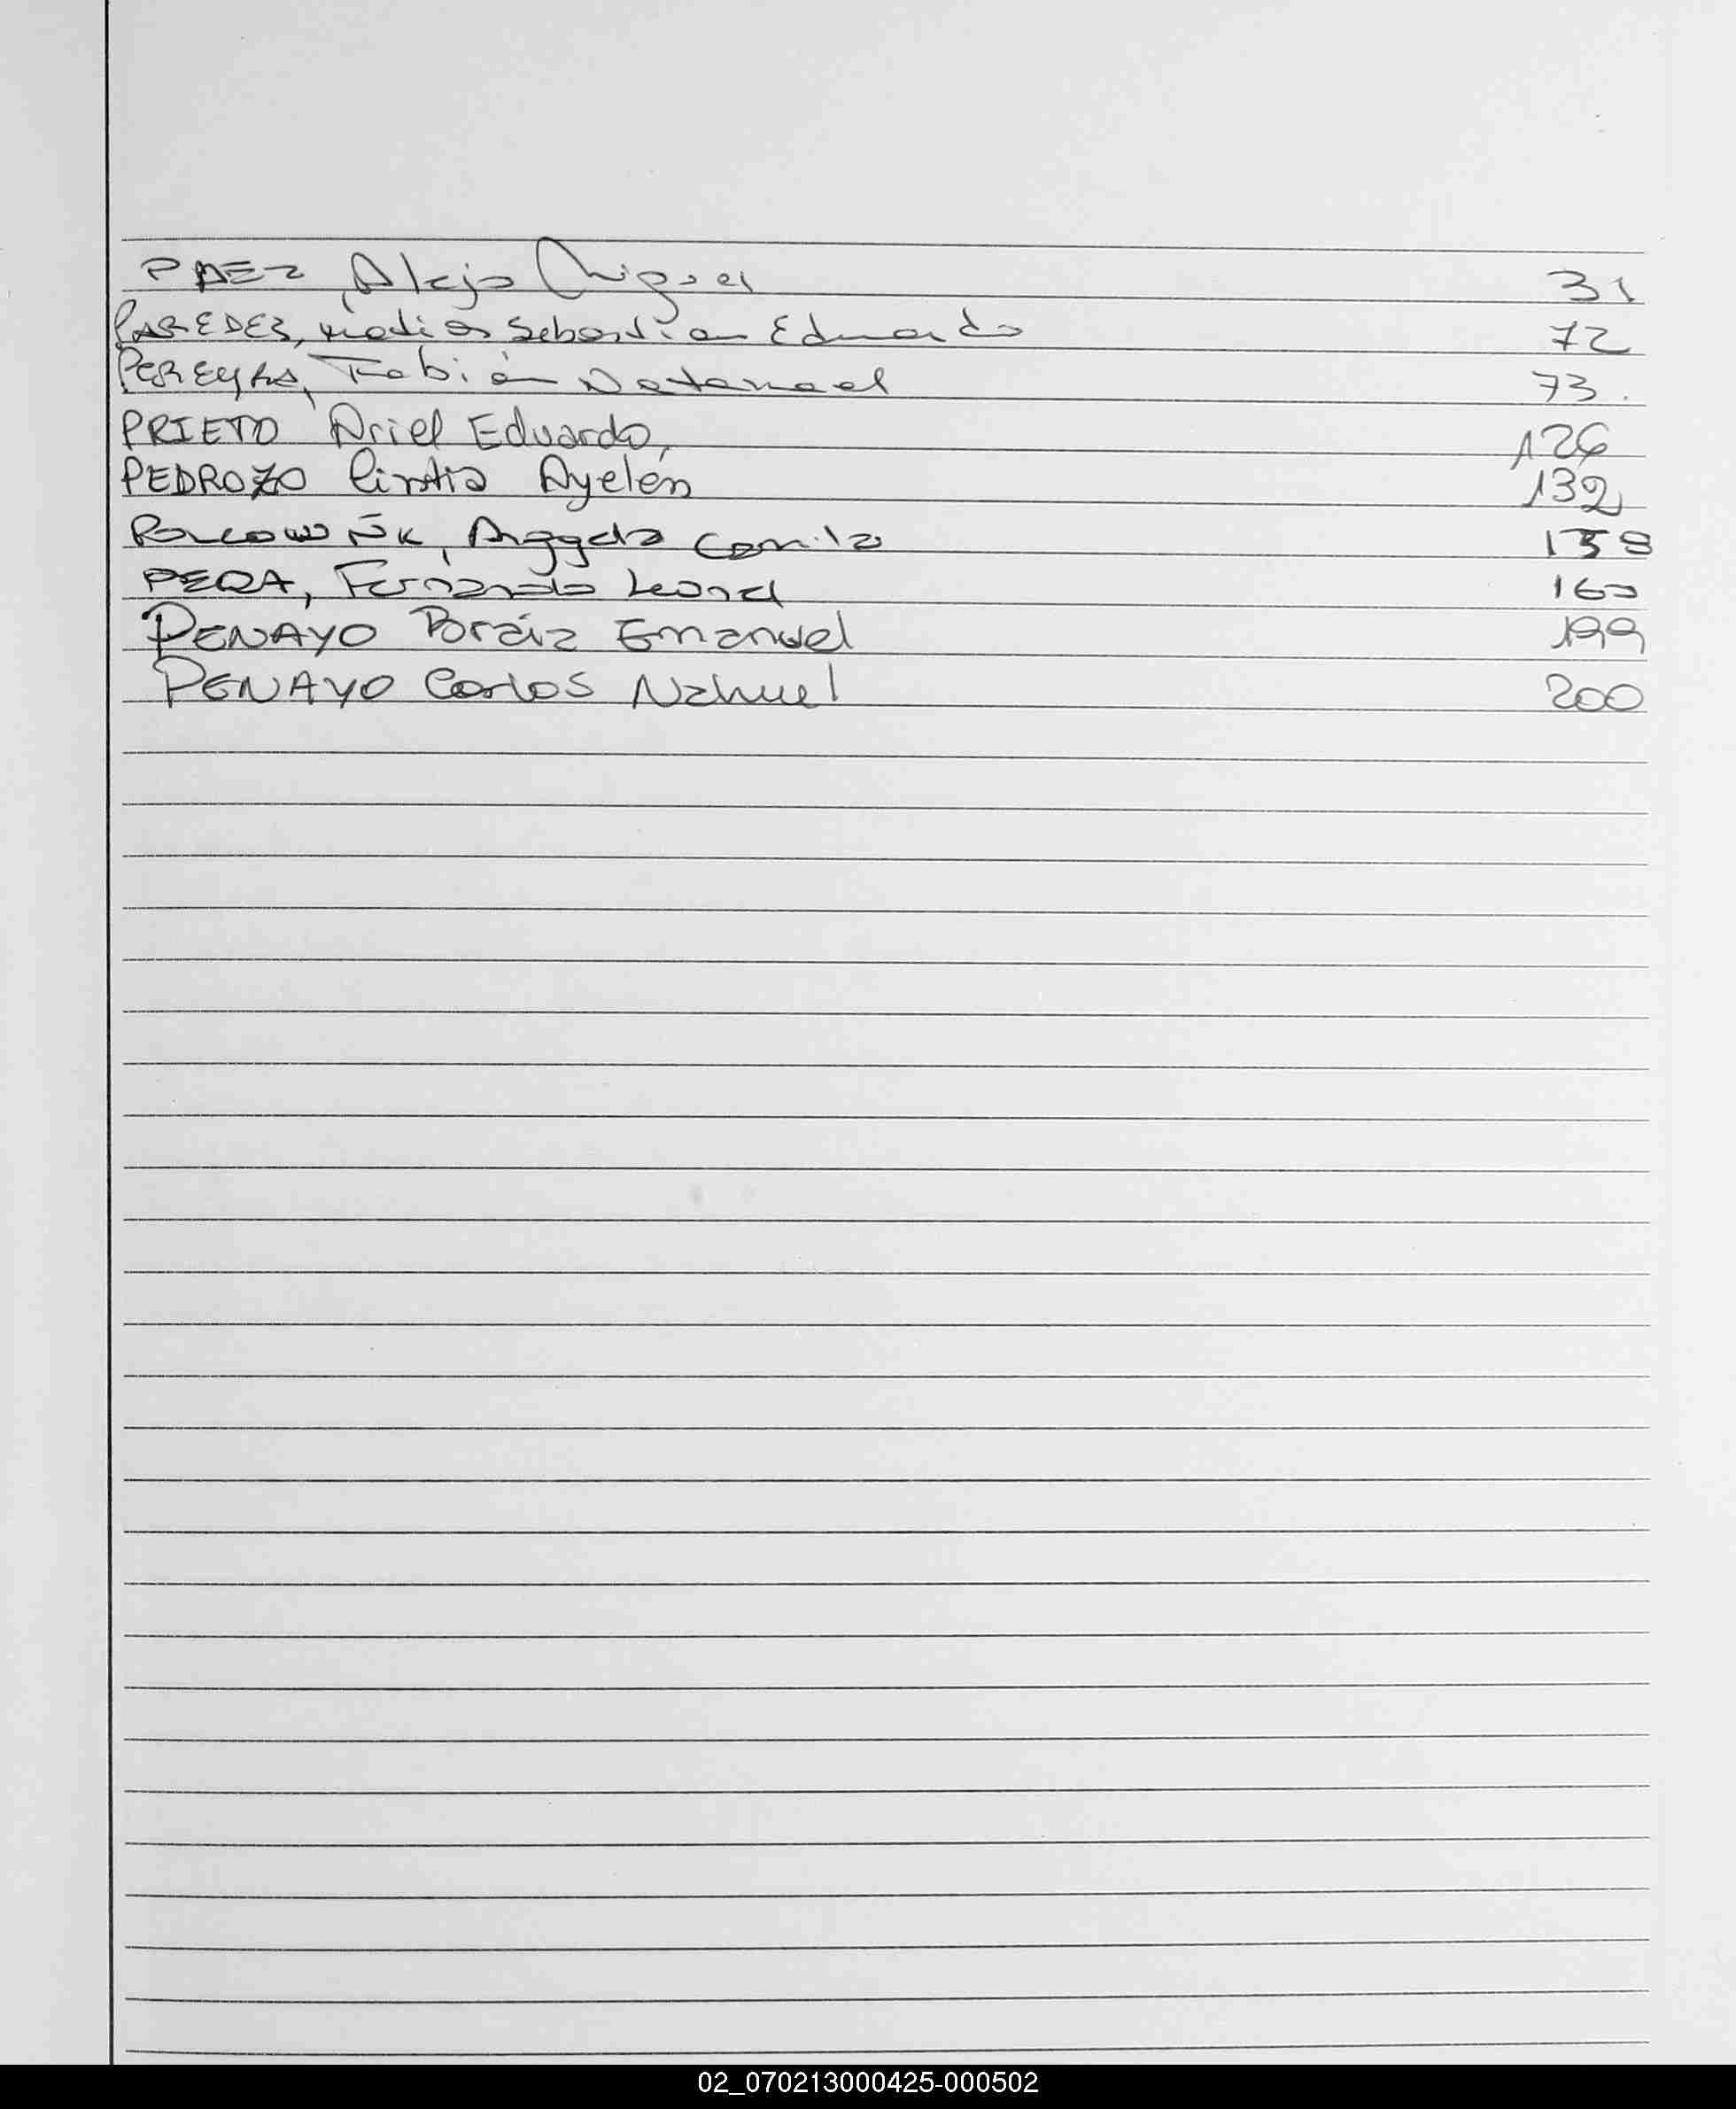 PAEZ, Alejo Miguel 31
PAREDES, Matias Sebastian Eduardo 72
PEREYRA, Fabián Natanael 73.
PRIETO Ariel Eduardo, 126
PEDROZO Cintia Ayelén 132
Camila 158
PERA, Fernando Leonel 160
PENAYO Boráiz Emanuel 199
PENAYO Carlos Nahuel 200
02_070213000425-000502